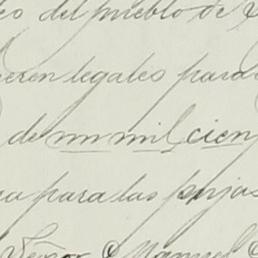 del pueblo de
legales para
de un mil cien
para las
Señor Manuel